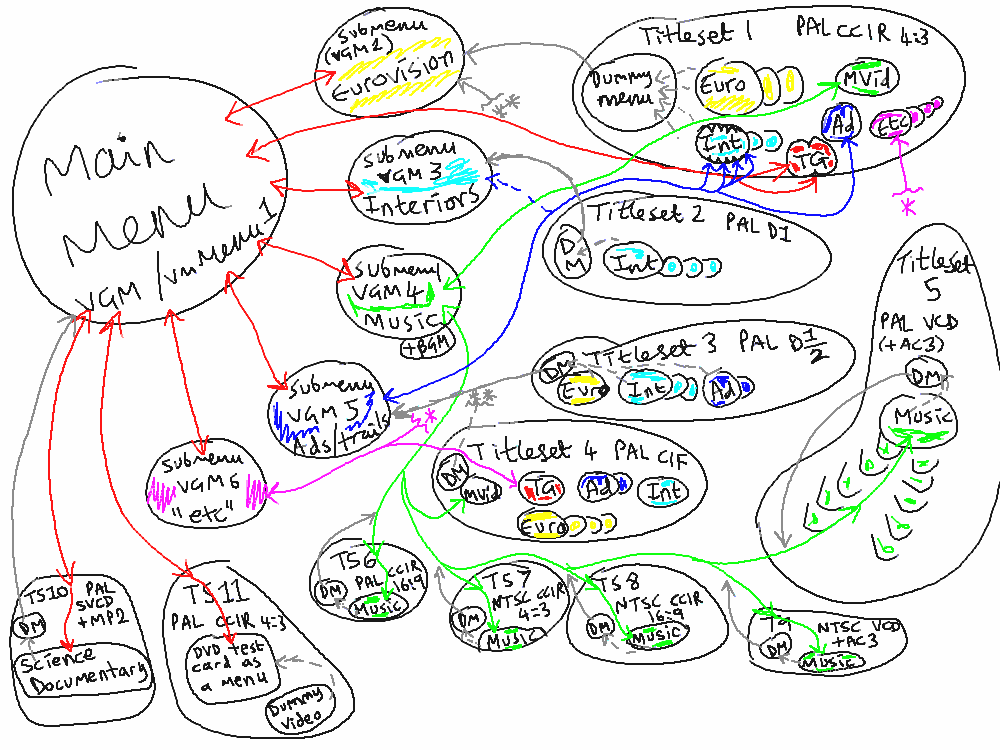 Main
Menu
VGM /vmMenu 1
Submenu
(VGM2)
Eurovision
**
submenu
VGM 3
Interiors
submenu
VGM 4
Music
+BGM
submenu
VGM 5
Ads/trails
submenu
VGM 6
"etc"
Titleset 1 PAL CCIR 4:3
Dummy
menu
Euro
MVid
Int
Ad
Etc
TG
*
Titleset 2 PAL D1
DM
Int
Titleset 3 PAL D1/2
DM
Euro
Int
Ad
**
*
Titleset 4 PAL CIF
DM
MVid
TG
Ad
Int
Euro
Titleset
5
PAL VCD
(+AC3)
DM
Music
TS6
PAL CCIR
16:9
DM
Music
TS7
NTSC CCIR
4:3
DM
Music
TS8
NTSC CCIR
16:9
DM
Music
T9
NTSC VCD
+AC3
DM
Music
TS10
PAL
SVCD
+MP2
DM
Science
Documentary
TS11
PAL CCIR 4:3
DVD test
card as
a menu
Dummy
video